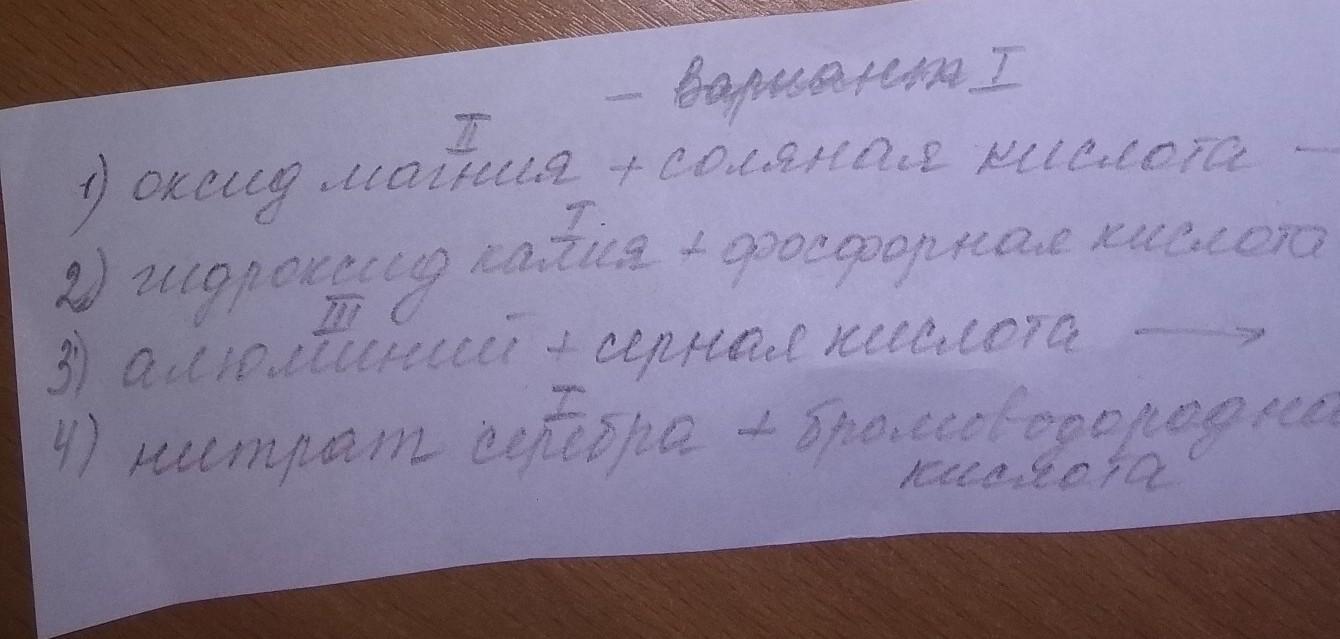 – вариант I
1) оксид магния II + соляная кислота —
2) гидроксид калия I + фосфорная кислота
3) алюминий III + серная кислота →
4) нитрат серебра I + бромоводородна
кислота